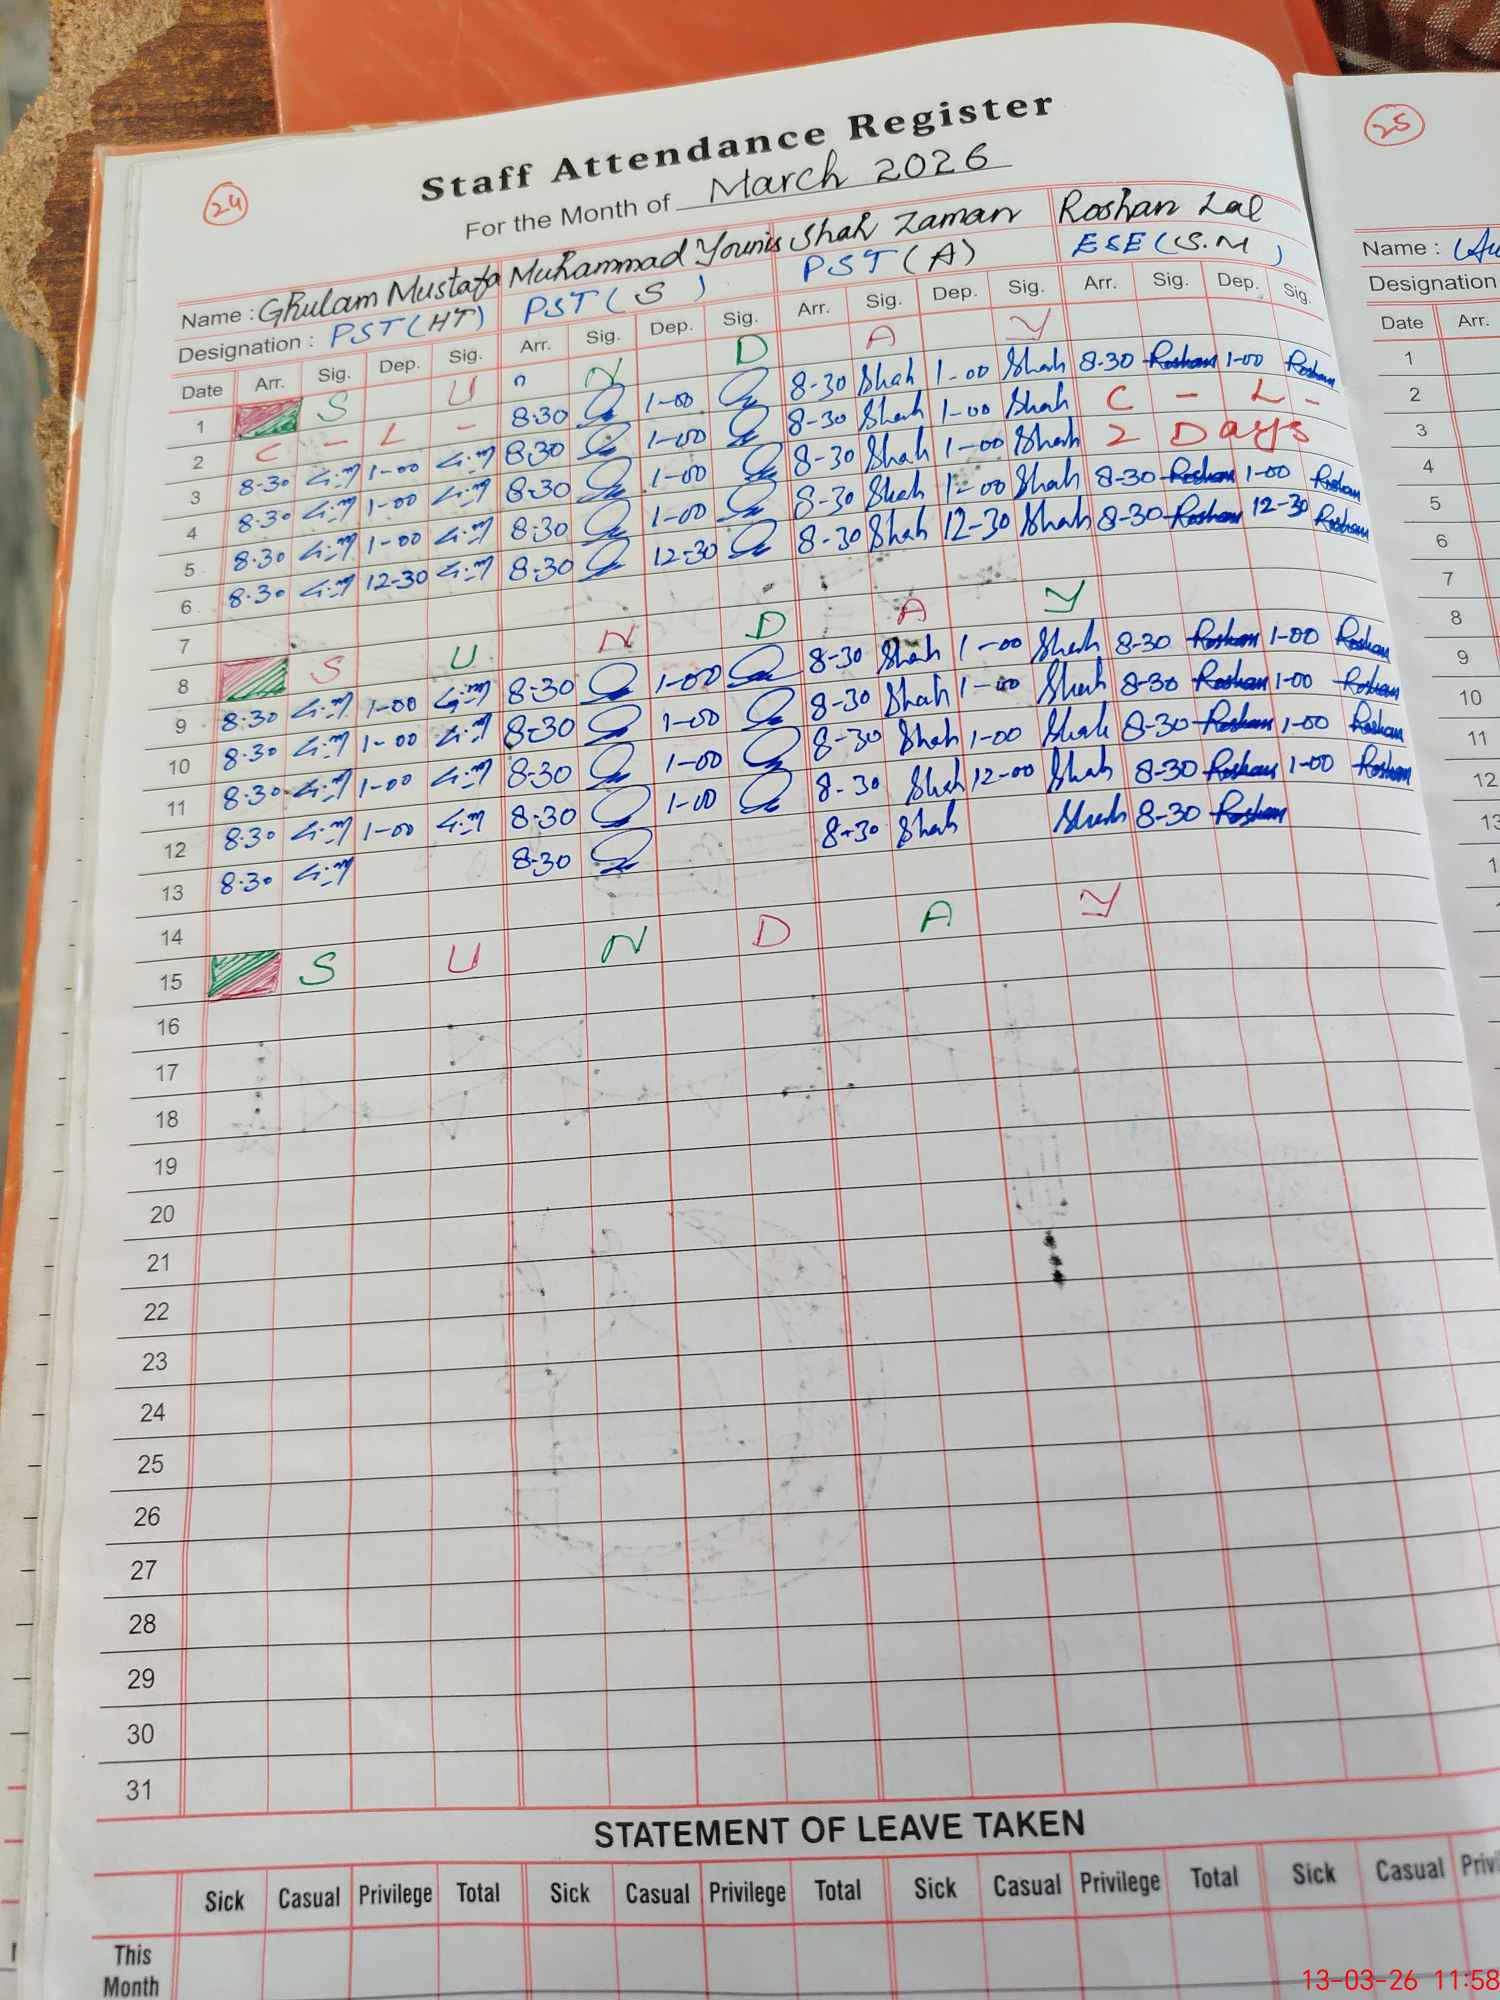 24
Staff Attendance Register
For the Month of March 2026
Name : Ghulam Mustafa Muhammad Younis Shah Zaman Roshan Lal
Designation : PST (HT) PST (S) PST (A) ESE (S.M)
Date Arr. Sig. Dep. Sig. Arr. Sig. Dep. Sig. Arr. Sig. Dep. Sig. Arr. Sig. Dep. Sig.
1 S U N D A Y
2 C - L - 8:30 1-00 8-30 Shah 1-00 Shah 8-30 Roshan 1-00 Roshan
3 8-30 1-00 8:30 1-00 8-30 Shah 1-00 Shah C - L -
4 8-30 1-00 8:30 1-00 8-30 Shah 1-00 Shah 2 Days
5 8-30 1-00 8:30 1-00 8-30 Shah 1-00 Shah 8-30 Roshan 1-00 Roshan
6 8-30 12-30 8-30 12-30 8-30 Shah 12-30 Shah 8-30 Roshan 12-30 Roshan
7
8 S U N D A Y
9 8-30 1-00 8-30 1-00 8-30 Shah 1-00 Shah 8-30 Roshan 1-00 Roshan
10 8-30 1-00 8-30 1-00 8-30 Shah 1-00 Shah 8-30 Roshan 1-00 Roshan
11 8-30 1-00 8-30 1-00 8-30 Shah 1-00 Shah 8-30 Roshan 1-00 Roshan
12 8-30 1-00 8-30 1-00 8-30 Shah 12-00 Shah 8-30 Roshan 1-00 Roshan
13 8-30 8-30 8-30 Shah Shah 8-30 Roshan
14
15 S U N D A Y
16
17
18
19
20
21
22
23
24
25
26
27
28
29
30
31
STATEMENT OF LEAVE TAKEN
Sick Casual Privilege Total Sick Casual Privilege Total Sick Casual Privilege Total Sick Casual
This
Month
25
Name :
Designation
Date Arr.
1
2
3
4
5
6
7
8
9
10
11
12
13
13-03-26 11:58